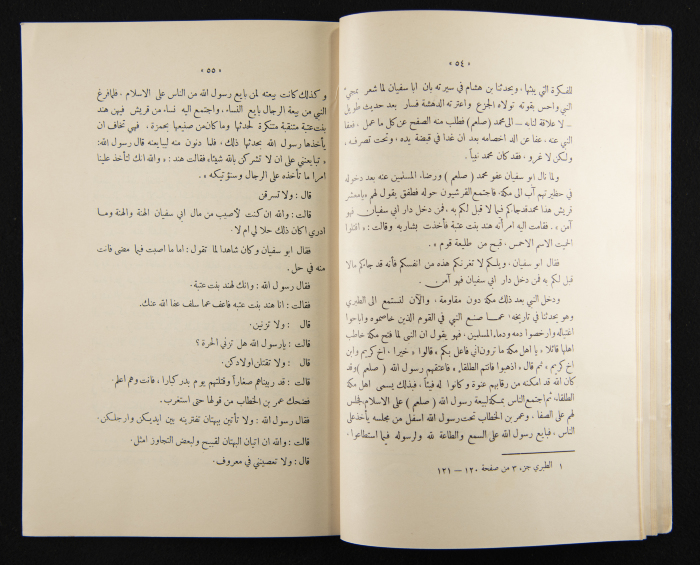 « ٥٤ »
للفكرة التي يبثها، ويحدثنا بن هشام في سيرته بان ابا سفيان لما شعر بمجيء
النبي واحس بقوته تولاه الجزع واعترته الدهشة فسار بعد حديث طويل
– لا علاقة لنا به – الى محمد (صلعم) فطلب منه الصفح عن كل ما عمل، فعفا
النبي عنه، عفا عن الد اخصامه بعد ان غدا في قبضة يده، وتحت تصرفه،
ولكن لا غرو، فقد كان محمد نبياً.
ولما نال ابو سفيان عفو محمد (صلعم) ورضاء المسلمين عنه بعد دخوله
في حظيرتهم آب الى مكة، فاجتمع القرشيون حوله فطفق يقول لهم «يا معشر
قريش هذا محمد قد جاكم فيما لا قبل لكم به، فمن دخل دار ابي سفيان فهو
آمن». فقامت اليه امرأته هند بنت عتبة فأخذت بشاربه وقالت: «اقتلوا
الحميت الاسم الاحمس، قبح من طليعة قوم».
فقال ابو سفيان، ويلكم لا تغرنكم هذه من انفسكم فأنه قد جاكم مالا
قبل لكم به فمن دخل دار ابي سفيان فهو آمن.
ودخل النبي بعد ذلك مكة دون مقاومة، والآن لنستمع الى الطبري
وهو يحدثنا في تاريخه: عما صنع النبي في القوم الذين خاصموه واباحوا
اغتياله وارخصوا دمه ودماء المسلمين. فهو يقول ان النبي لما فتح مكة خاطب
اهلها قائلا «يا اهل مكة ما ترون اني فاعل بكم» قالوا «خيرا، اخ كريم وابن
اخ كريم» ثم قال «اذهبوا فانتم الطلقاء» فاعتقهم رسول الله (صلعم) وقد
كان الله قد امكنه من رقابهم عنوة وكانوا له فيئاً، فبذلك يسمى اهل مكة
الطلقاء، ثم اجتمع الناس بمكة لبيعة رسول الله (صلعم) على الاسلام فجلس
لهم على الصفا، وعمر بن الخطاب تحت رسول الله اسفل من مجلسه يأخذ على
الناس، فبايع رسول الله على السمع والطاعة لله ولرسوله فيما استطاعوا.
١ الطبري جزء ٣ من صفحة ١٢٠ – ١٢١
« ٥٥ »
وكذلك كانت بيعته لمن بايع رسول الله من الناس على الاسلام، فلما فرغ
النبي من بيعة الرجال بايع النساء، واجتمع اليه نساء من قريش فيهن هند
بنت عتبة متنقبة متنكرة لحدثها وما كان من صنيعها بحمزة، فهي تخاف ان
يأخذها رسول الله بحدثها ذلك، فلما دنون منه ليبايعنه قال رسول الله:
«تبايعنني على ان لا تشركن بالله شيئاً» فقالت هند: «والله انك لتأخذ علينا
امرا ما تأخذه على الرجال وسنؤتيكه».
قال: ولا تسرقن
قالت: والله ان كنت لأصيب من مال ابي سفيان الهنة والهنة وما
ادري اكان ذلك حلا لي ام لا.
فقال ابو سفيان وكان شاهدا لما تقول: اما ما اصبت فيما مضى فانت
منه في حل.
فقال رسول الله: وانك لهند بنت عتبة.
فقالت: انا هند بنت عتبه فاعف عما سلف عفا الله عنك.
قال: ولا تزنين.
قالت: يا رسول الله هل تزني الحرة؟
قال: ولا تقتلن اولادكن.
قالت: قد ربيناهم صغاراً وقتلتهم يوم بدر كبارا، فانت وهم اعلم.
فضحك عمر بن الخطاب من قولها حتى استغرب.
فقال رسول الله: ولا تأتين ببهتان تفترينه بين ايديكن وارجلكن.
قالت: والله ان اتيان البهتان لقبيح ولبعض التجاوز امثل.
قال: ولا تعصينني في معروف.